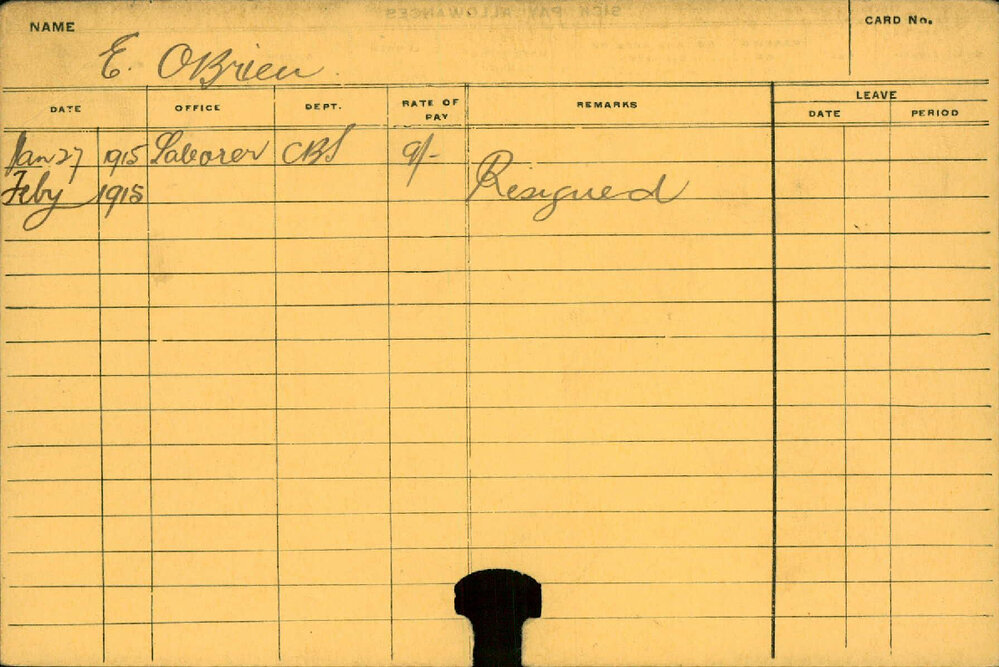 NAME
CARD No.
E. OBrien
DATE OFFICE DEPT. RATE OF PAY REMARKS LEAVE
DATE PERIOD
Jan 27 1915 Laborer CBS 9/-
Feby 1915 Resigned